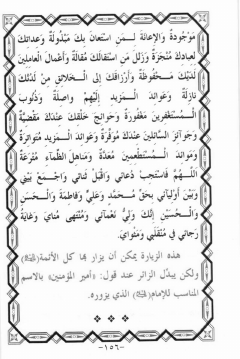 مَوْجُودَةٌ وَالإِعَانَةَ لِمَنِ اسْتَعَانَ بِكَ مَبْذُولَةٌ وَعِدَاتِكَ
لِعِبَادِكَ مُنْجَزَةٌ وَزَلَلَ مَنِ اسْتَقَالَكَ مُقَالَةٌ وَأَعْمَالَ الْعَامِلِينَ
لَدَيْكَ مَحْفُوظَةٌ وَأَرْزَاقَكَ إِلَى الْخَلَائِقِ مِنْ لَدُنْكَ
نَازِلَةٌ وَعَوَائِدَ الْمَزِيدِ إِلَيْهِمْ وَاصِلَةٌ وَذُنُوبَ
الْمُسْتَغْفِرِينَ مَغْفُورَةٌ وَحَوَائِجَ خَلْقِكَ عِنْدَكَ مَقْضِيَّةٌ
وَجَوَائِزَ السَّائِلِينَ عِنْدَكَ مُوَفَّرَةٌ وَعَوَائِدَ الْمَزِيدِ مُتَوَاتِرَةٌ
وَمَوَائِدَ الْمُسْتَطْعِمِينَ مُعَدَّةٌ وَمَنَاهِلَ الظِّمَاءِ مُتْرَعَةٌ
اللَّهُمَّ فَاسْتَجِبْ دُعَائِي وَاقْبَلْ ثَنَائِي وَاجْمَعْ بَيْنِي
وَبَيْنَ أَوْلِيَائِي بِحَقِّ مُحَمَّدٍ وَعَلِيٍّ وَفَاطِمَةَ وَالْحَسَنِ
وَالْحُسَيْنِ إِنَّكَ وَلِيُّ نَعْمَائِي وَمُنْتَهَى مُنَايَ وَغَايَةُ
رَجَائِي فِي مُنْقَلَبِي وَمَثْوَايَ.
هذه الزيارة يمكن أن يزار بها كل الأئمة
ولكن يبدّل الزائر عند قول: «أمير المؤمنين» بالاسم
المناسب للإمام الذي يزوره.
-١٥٦-